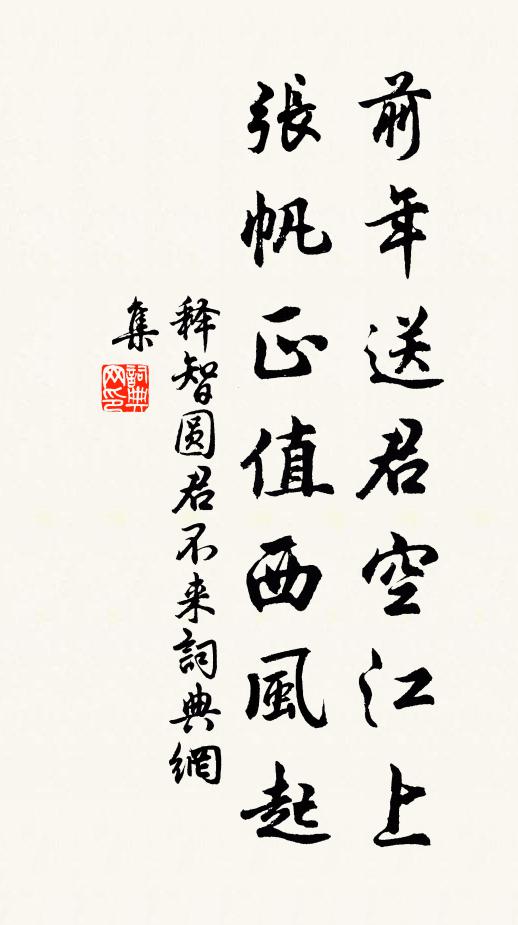 前年送君空江上
張帆正值西風起
释智圆君不来詞典網
集
詞典
网印